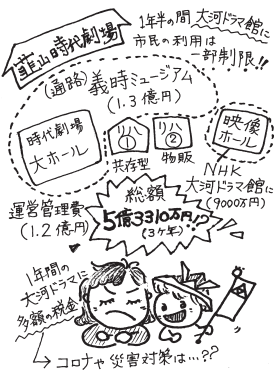 韮山時代劇場
1年半の間 大河ドラマ館に
市民の利用は
一部制限!!
(通路)義時ミュージアム
(1.3億円)
時代劇場
大ホール
リハ
①
リハ
②
共存型
物販
映像
ホール
NHK
大河ドラマ館に
(9000万円)
運営管理費
(1.2億円)
総額
5億3310万円!?
(3ヶ年)
1年間の
大河ドラマに
多額の税金
コロナや災害対策は…??